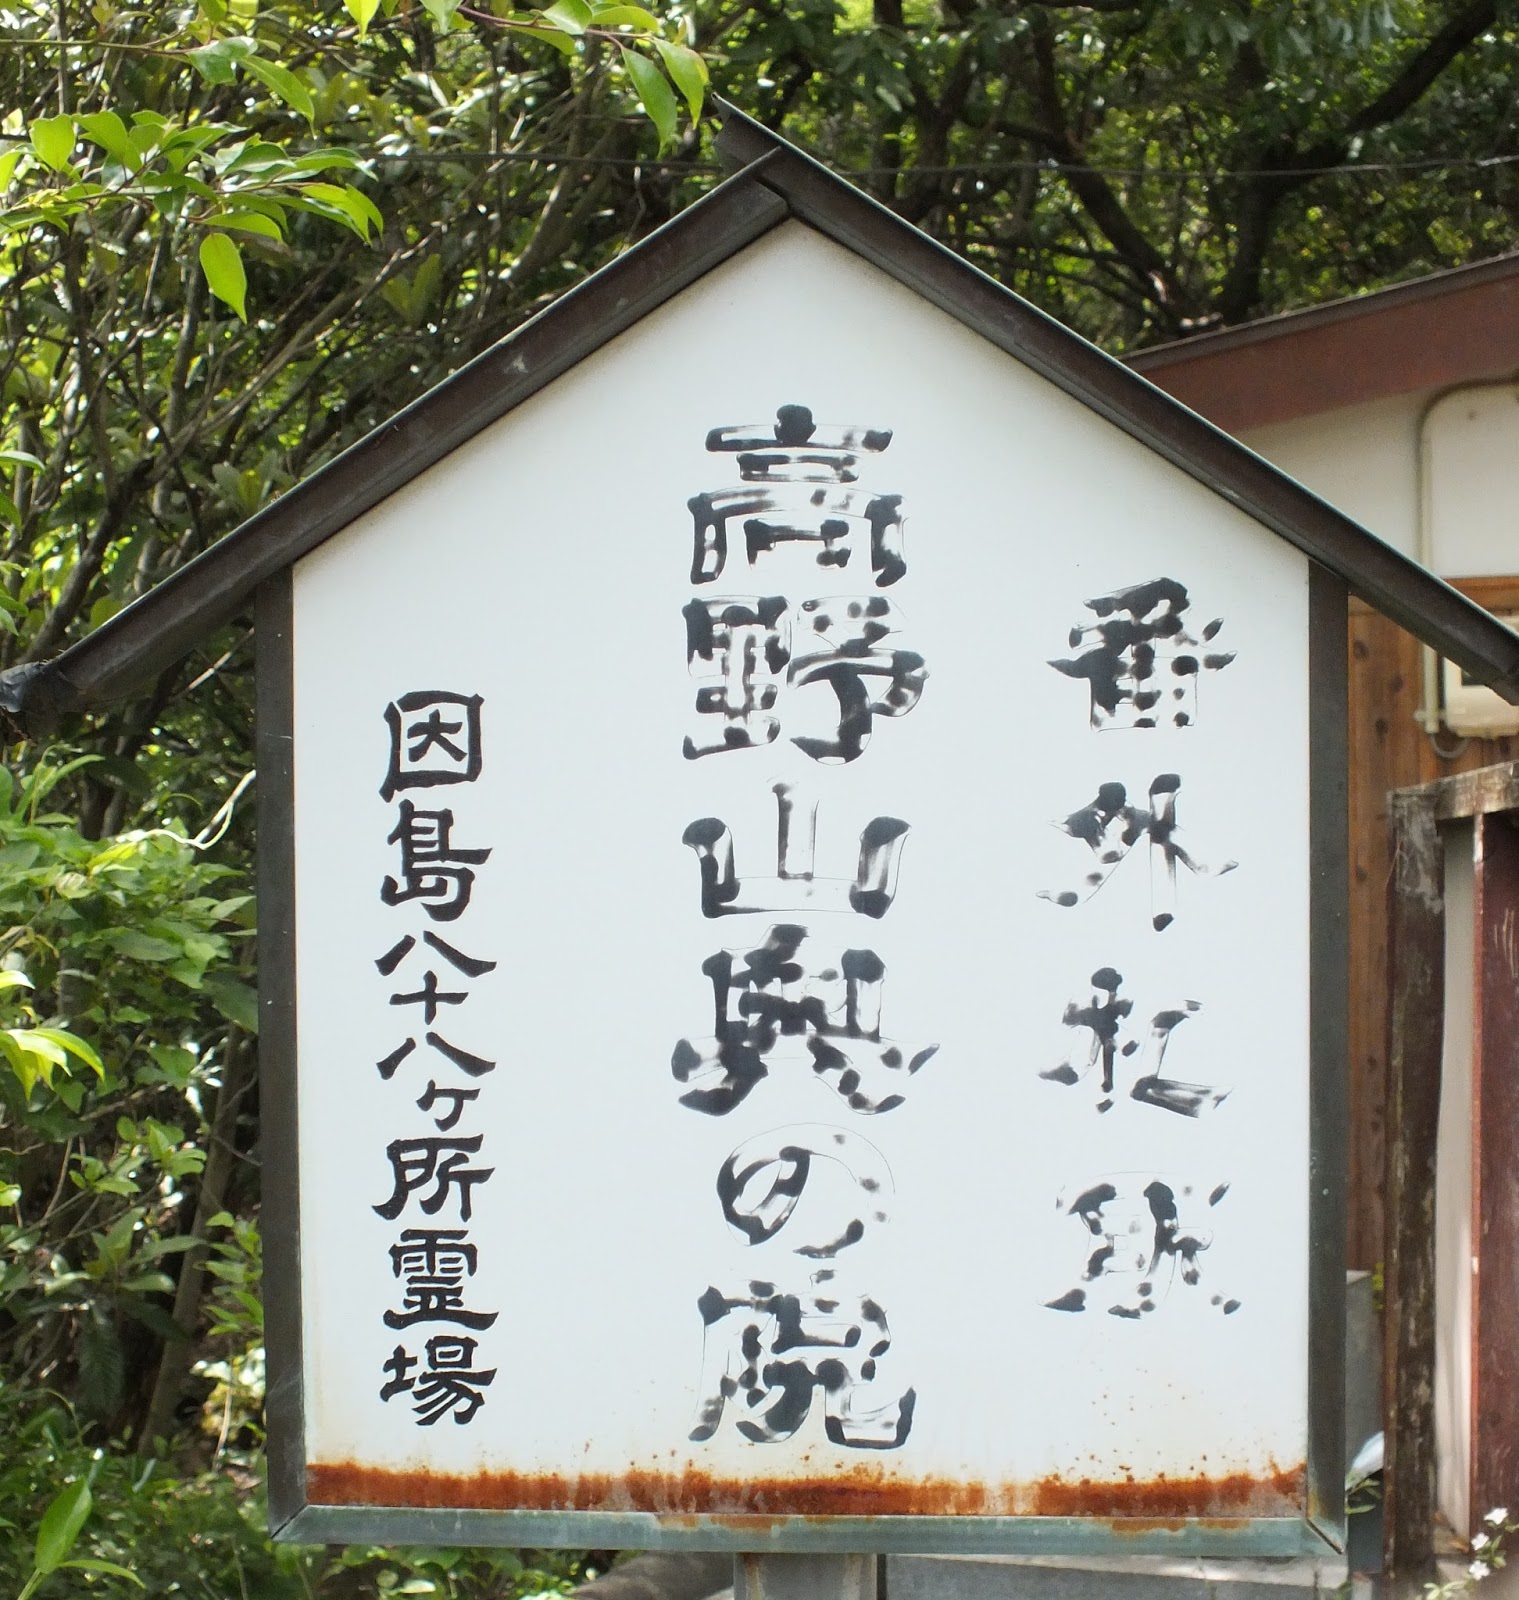 番外札所
高野山奥の院
因島八十八ヶ所霊場